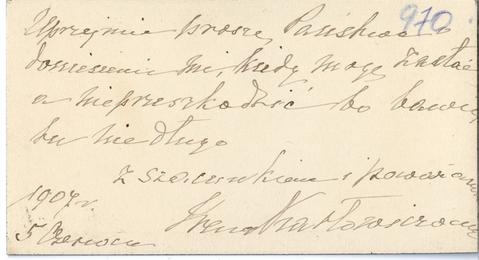 970.
Uprzejmie proszę Państwa o
doniesienie mi, kiedy mogę zastać
a nieprzeszkodzić bo bawię
tu niedługo
z szacunkiem i poważaniem
1907 r.
5 Czerwca